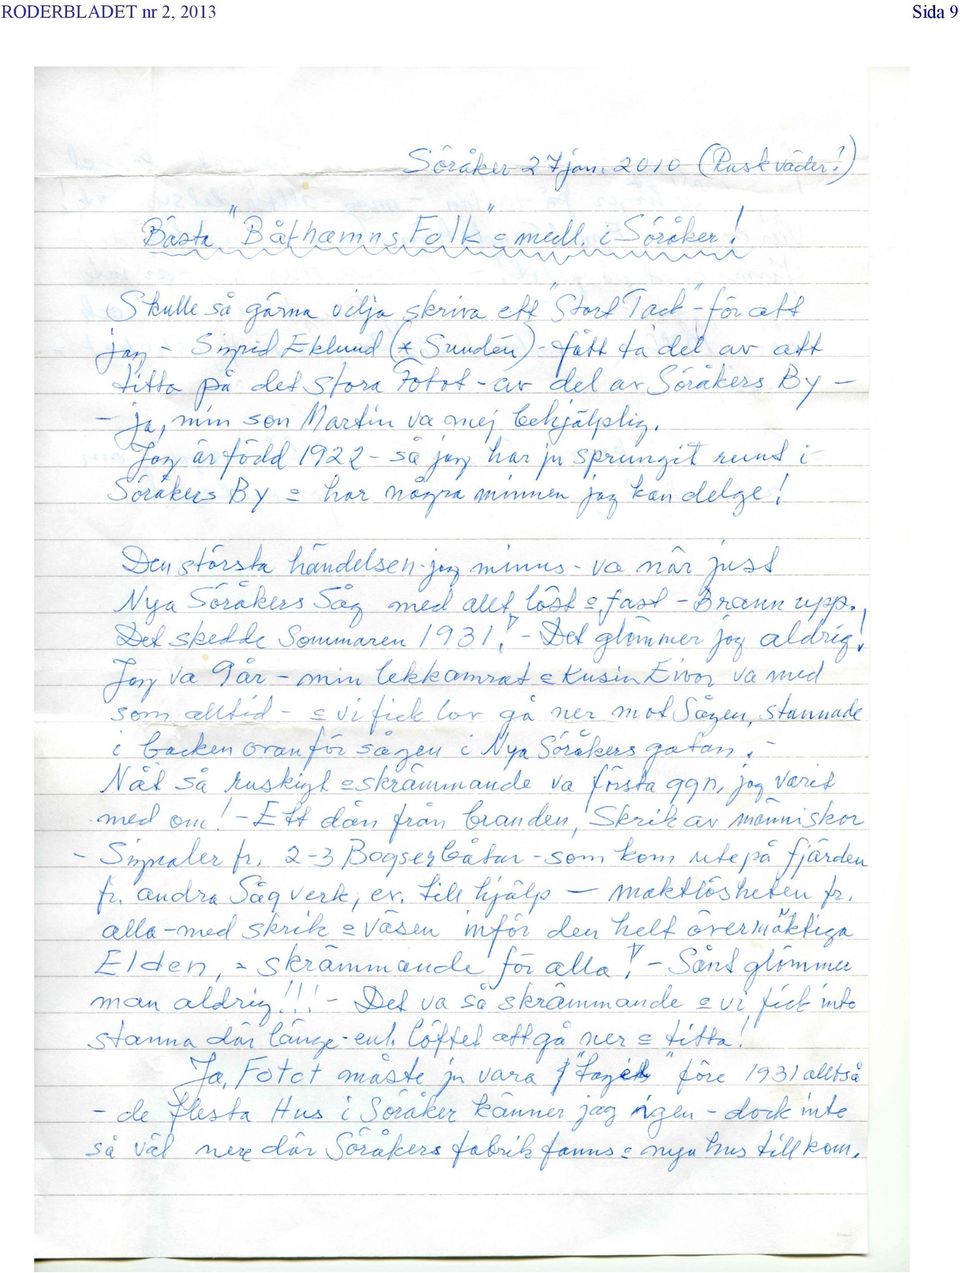 RODERBLADET nr 2, 2013 Sida 9
Söråker 27 jan. 2010 (Ruskväder!)
Bästa "Båthamns Folk" = medl. i Söråker!
Skulle så gärna vilja skriva ett "Stort Tack" - för att
jag - Sigrid Eklund (* Sundén) - fått ta del av att
titta på det stora Fotot - av del av Söråkers By -
- ja, min son Martin va mej behjälplig.
Jag är född 1922 - så jag har ju sprungit runt i
Söråkers By = har några minnen jag kan delge!
Den största händelsen jag minns - va när just
Nya Söråkers Såg med allt löst = fast - Brann upp.
Det skedde Sommaren 1931! - Det glömmer jag aldrig!
Jag va 9 år - min lekkamrat = Kusin Eivor va med
som alltid - = vi fick lov gå ner mot Sågen, stannade
i backen ovanför sågen i Nya Söråkers gatan. -
Nåt så ruskigt = skrämmande va första ggn, jag varit
med om! - Ett dån från branden, Skrik av människor
- Signaler fr. 2-3 Bogserbåtar - som kom ute på fjärden
fr. andra Sågverk, ev. till hjälp - maktlösheten fr.
alla - med skrik = väsen inför den helt övermäktiga
Elden, = skrämmande för alla! - Sånt glömmer
man aldrig!!! - Det va så skrämmande = vi fick inte
stanna där länge - enl. löftet att gå ner = titta!
Ja, Fotot måste ju vara "taget" före 1931 alltså
- de flesta Hus i Söråker känner jag igen - dock inte
så väl nere där Söråkers fabrik fanns = nya hus tillkom.